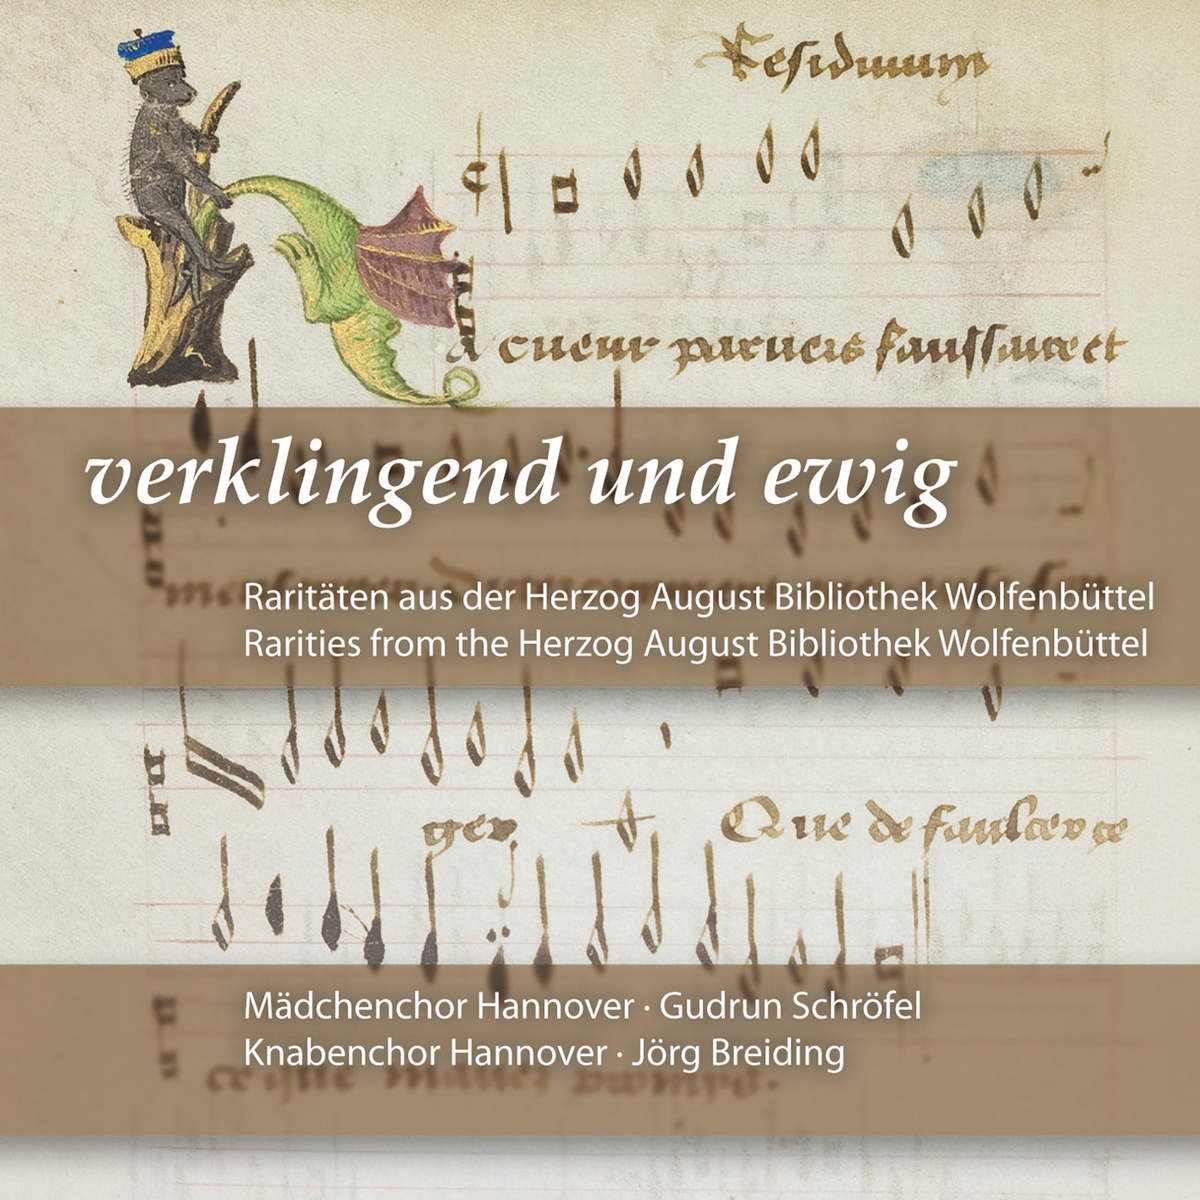 Residuum
A cueur parvers faussaire et
verklingend und ewig
Raritäten aus der Herzog August Bibliothek Wolfenbüttel
Rarities from the Herzog August Bibliothek Wolfenbüttel
ger Que de
Mädchenchor Hannover · Gudrun Schröfel
Knabenchor Hannover · Jörg Breiding